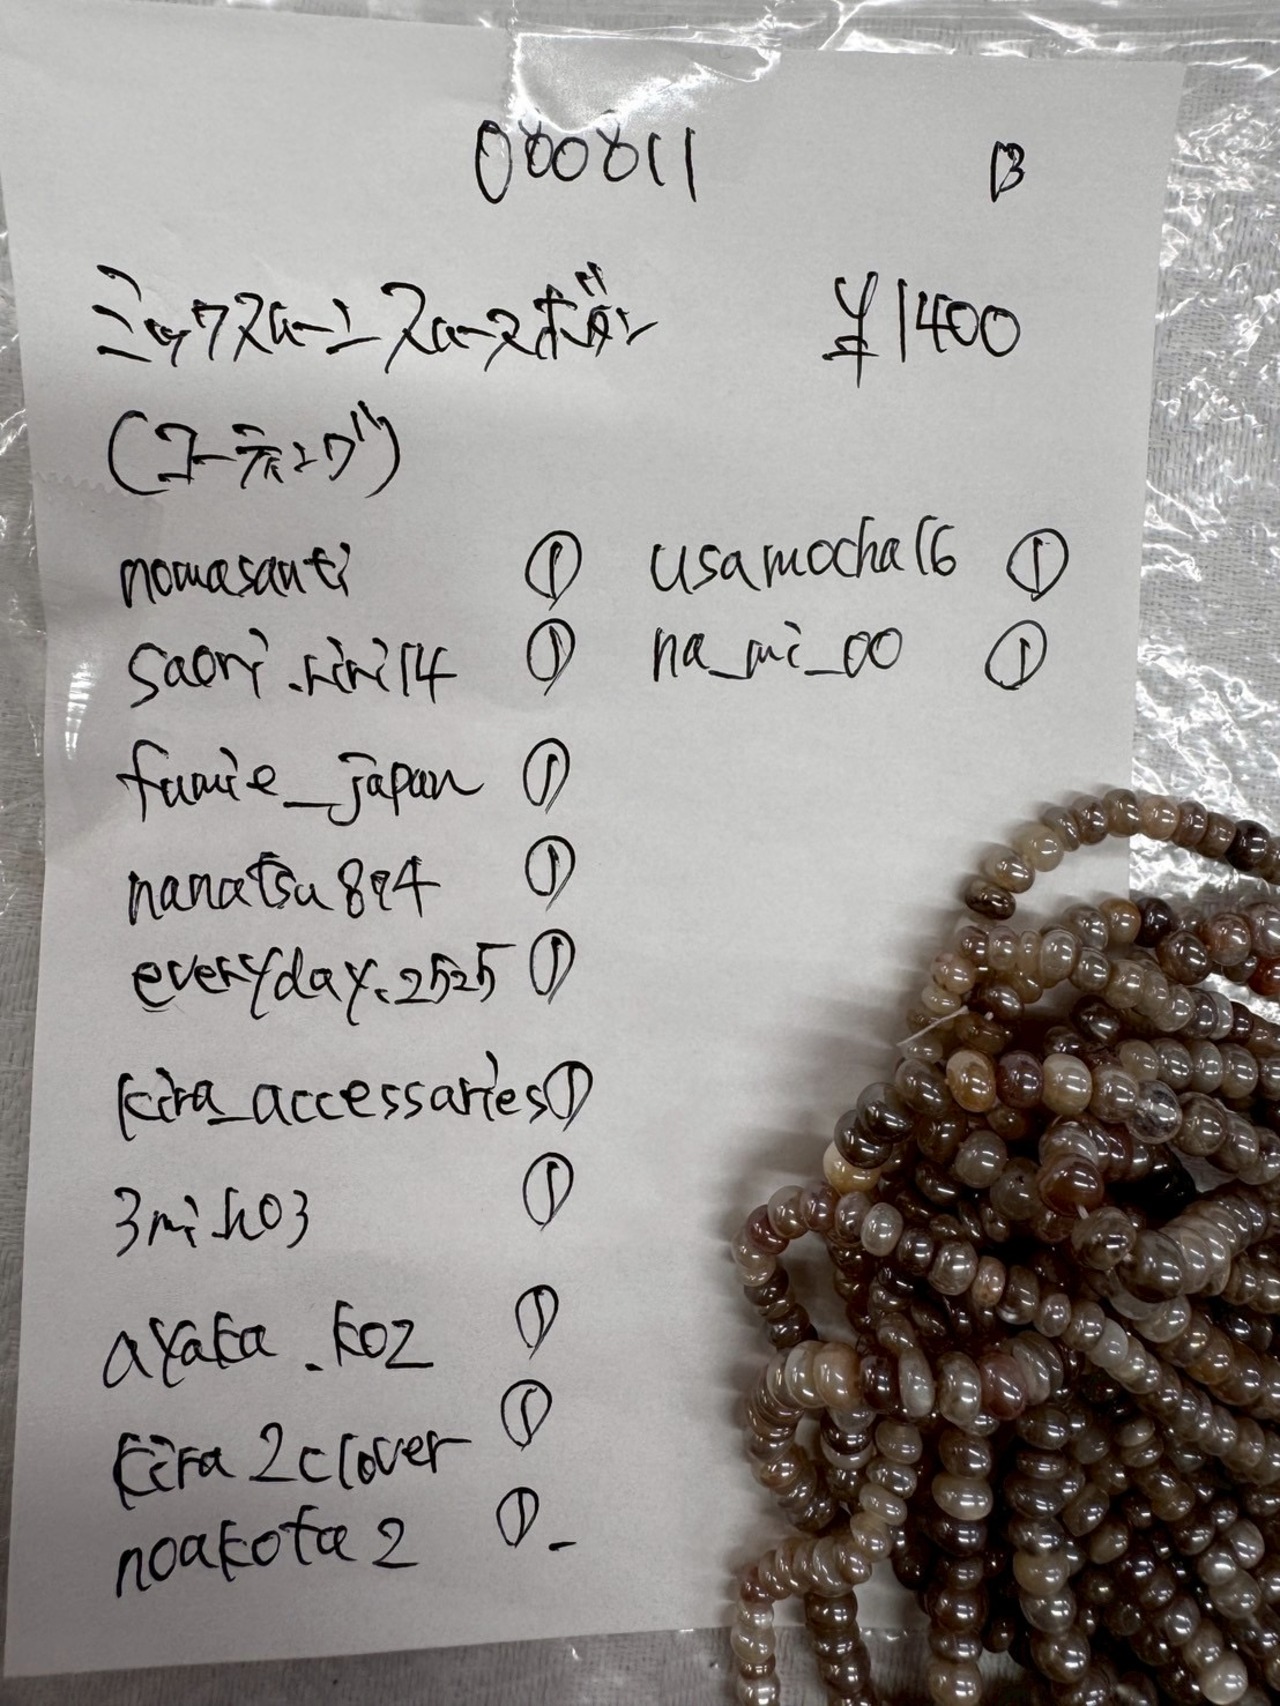 000811 B
ミックスムーンスムースボタン ¥1400
(コーティング)
nomasanti ① usamocha16 ①
saori.riri14 ① na_mi_00 ①
fumie_japan ①
nanatsu894 ①
everyday.2525 ①
kira_accessaries ①
3mish03 ①
ayaka.koz ①
kira2clover ①
noakota2 ①